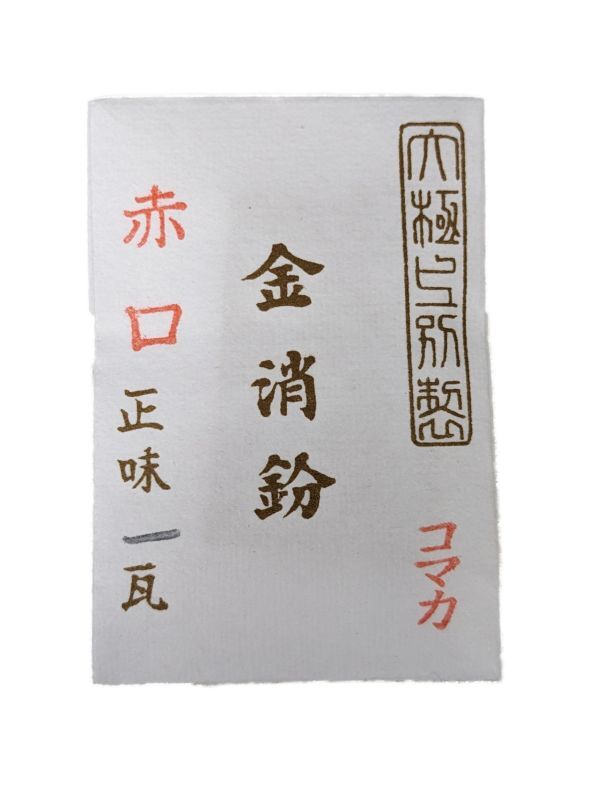 大極上別製
コマカ
金消鈖
赤口
正味一瓦